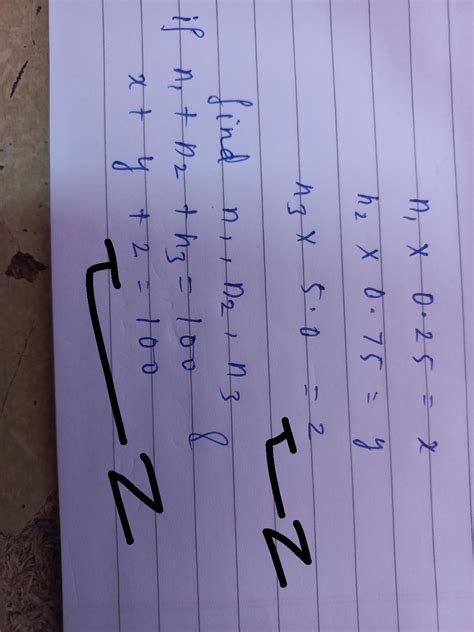 n₁ × 0.25 = x
n₂ × 0.75 = y
n₃ × 5.0 = z
Z
find n₁, n₂, n₃
if n₁ + n₂ + n₃ = 100 &
x + y + z = 100
Z